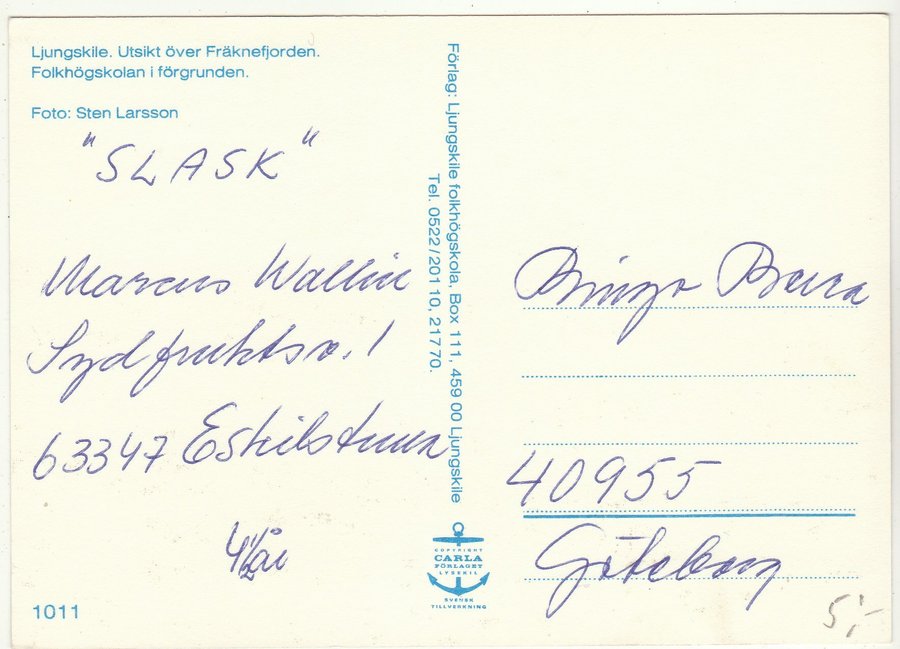 Ljungskile. Utsikt över Fräknefjorden.
Folkhögskolan i förgrunden.
Foto: Sten Larsson
"SLASK"
Marcus Wallin
Sydfruktsv. 1
63347 Eskilstuna
4 1/2 år
1011
Förlag: Ljungskile folkhögskola, Box 111, 459 00 Ljungskile
Tel. 0522/201 10, 217 70.
COPYRIGHT
CARLA
FÖRLAGET
LYSEKIL
SVENSK
TILLVERKNING
Bingo Bara
40955
Göteborg
5:-